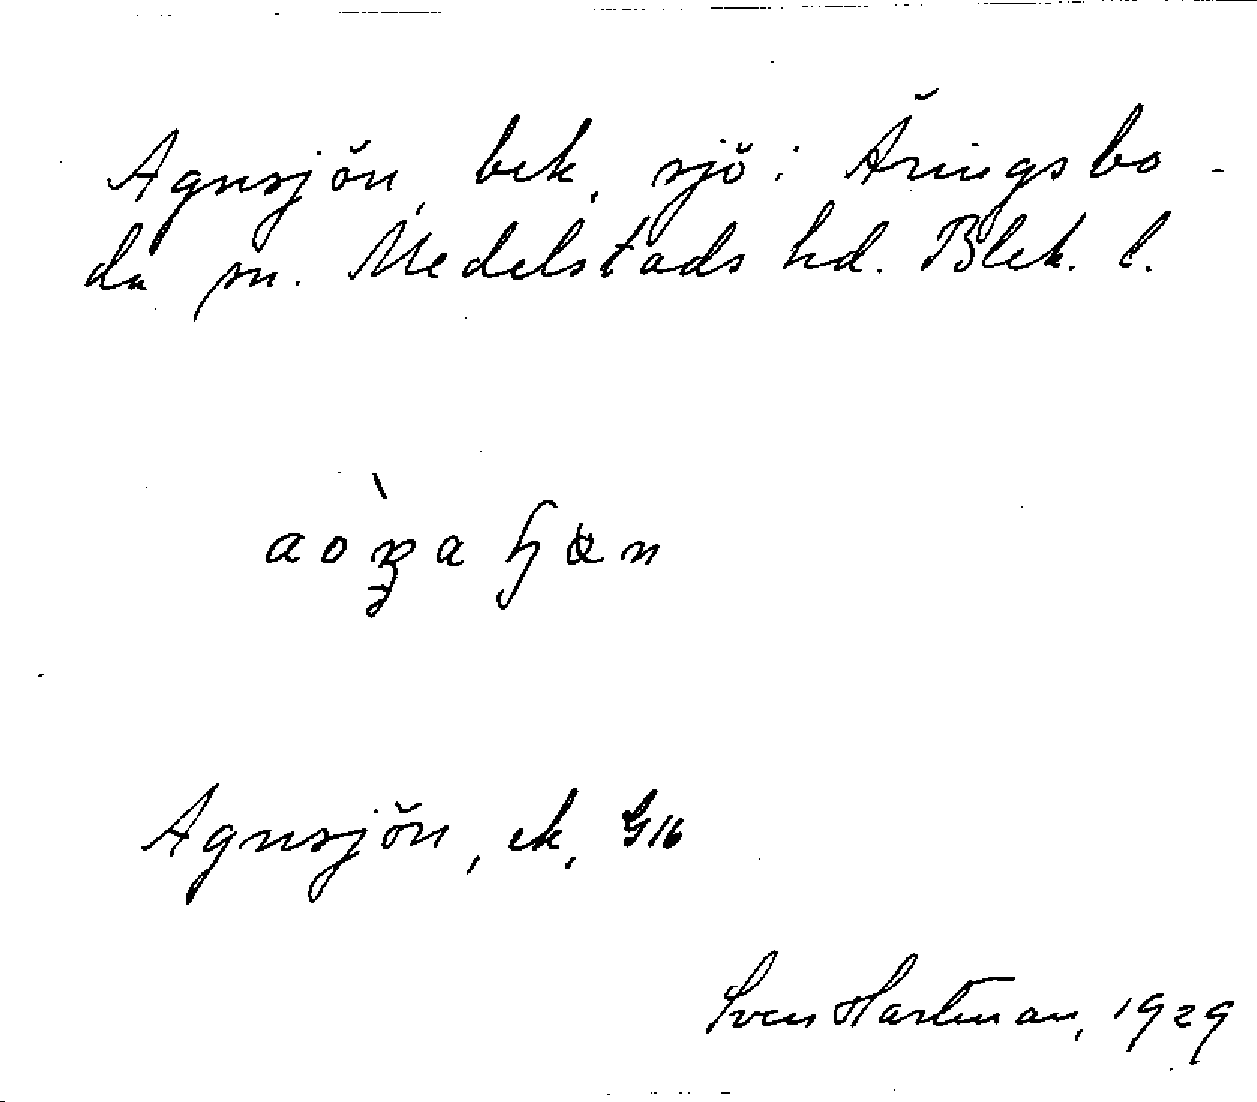 Agnsjön, bek. sjö i Åringsbo-
da sn. Medelstads hd. Blek. l.
Agnsjön, ek, G16
Sven Hartman, 1929